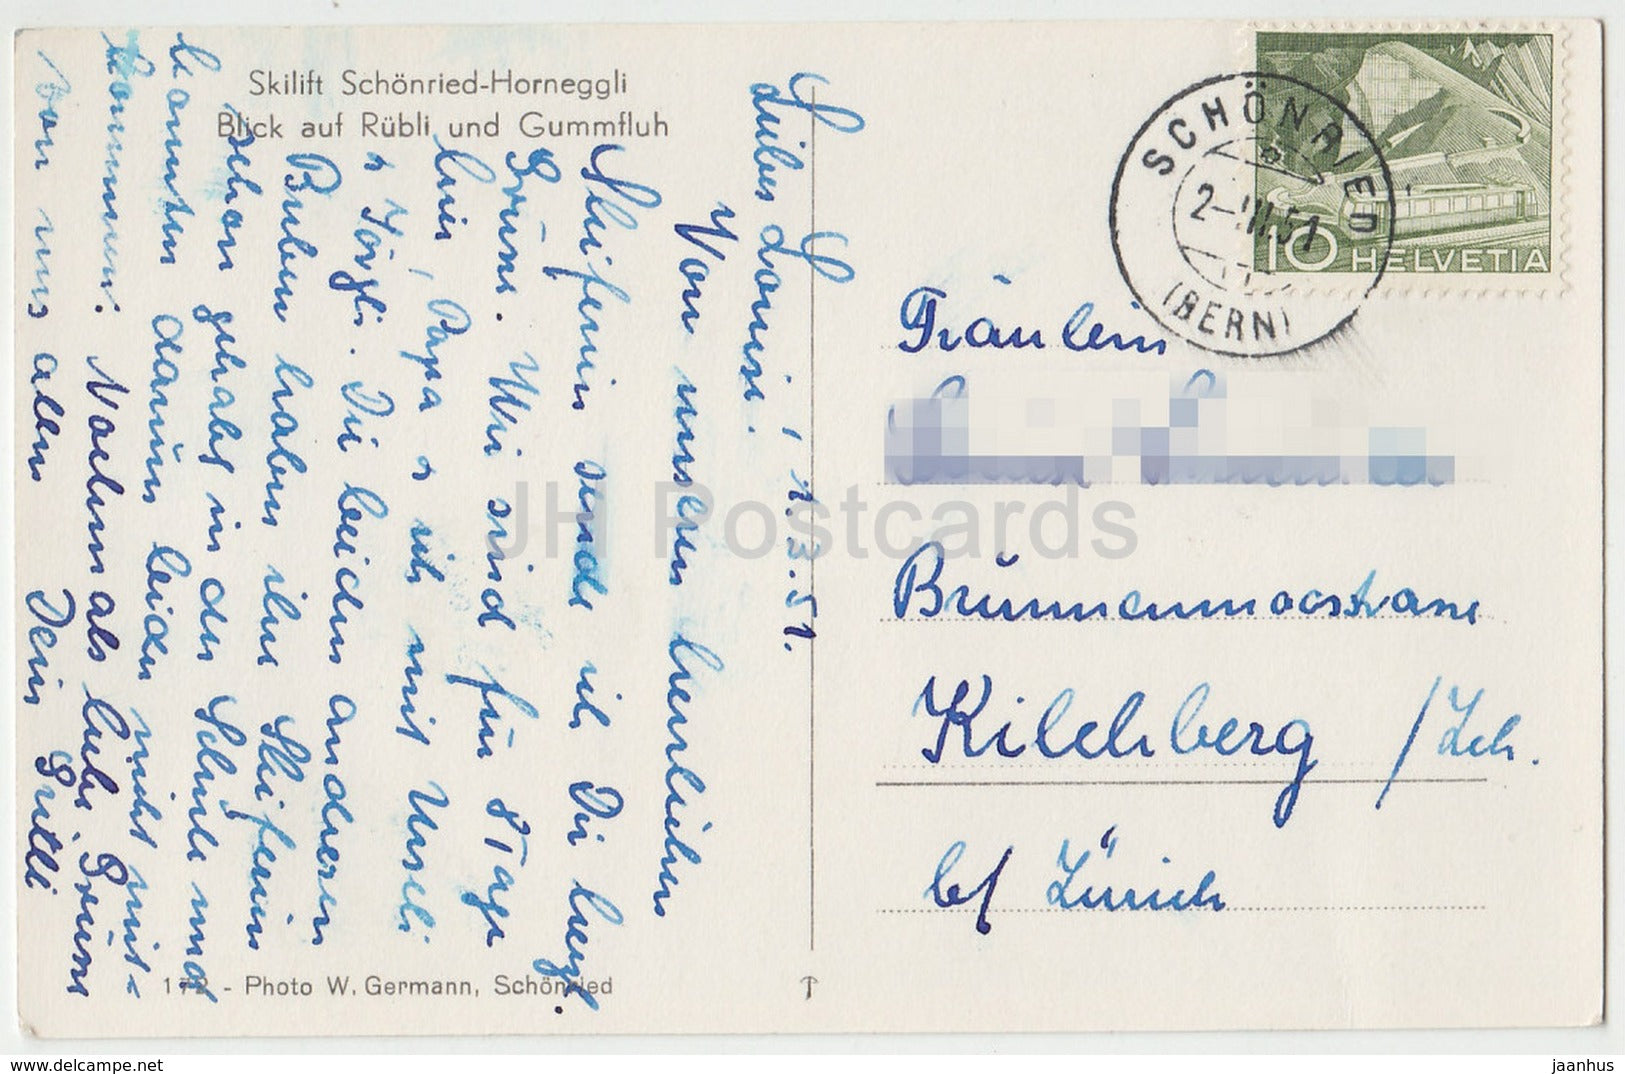 Skilift Schönried-Horneggli
Blick auf Rübli und Gummfluh
S., 1.3.51.
Liebes Louisi!
Von unseren herrlichen
Skiferien sende ich Dir herzl.
Grüsse. Wir sind für 8 Tage
hier, Papa & ich mit Urseli
& Jörgli. Die beiden anderen
Buben haben ihre Skiferien
schon gehabt in der Schule und
konnten darum leider nicht mit-
kommen. Nochmals liebe Grüsse
von uns allen Dein Gritli
172 - Photo W. Germann, Schönried
SCHÖNRIED
2.-III.51
(BERN)
10 HELVETIA
Fräulein
Brunnenmoosstrasse
Kilchberg / Zch.
b/ Zürich
JH Postcards
www.delcampe.net
jaanhus